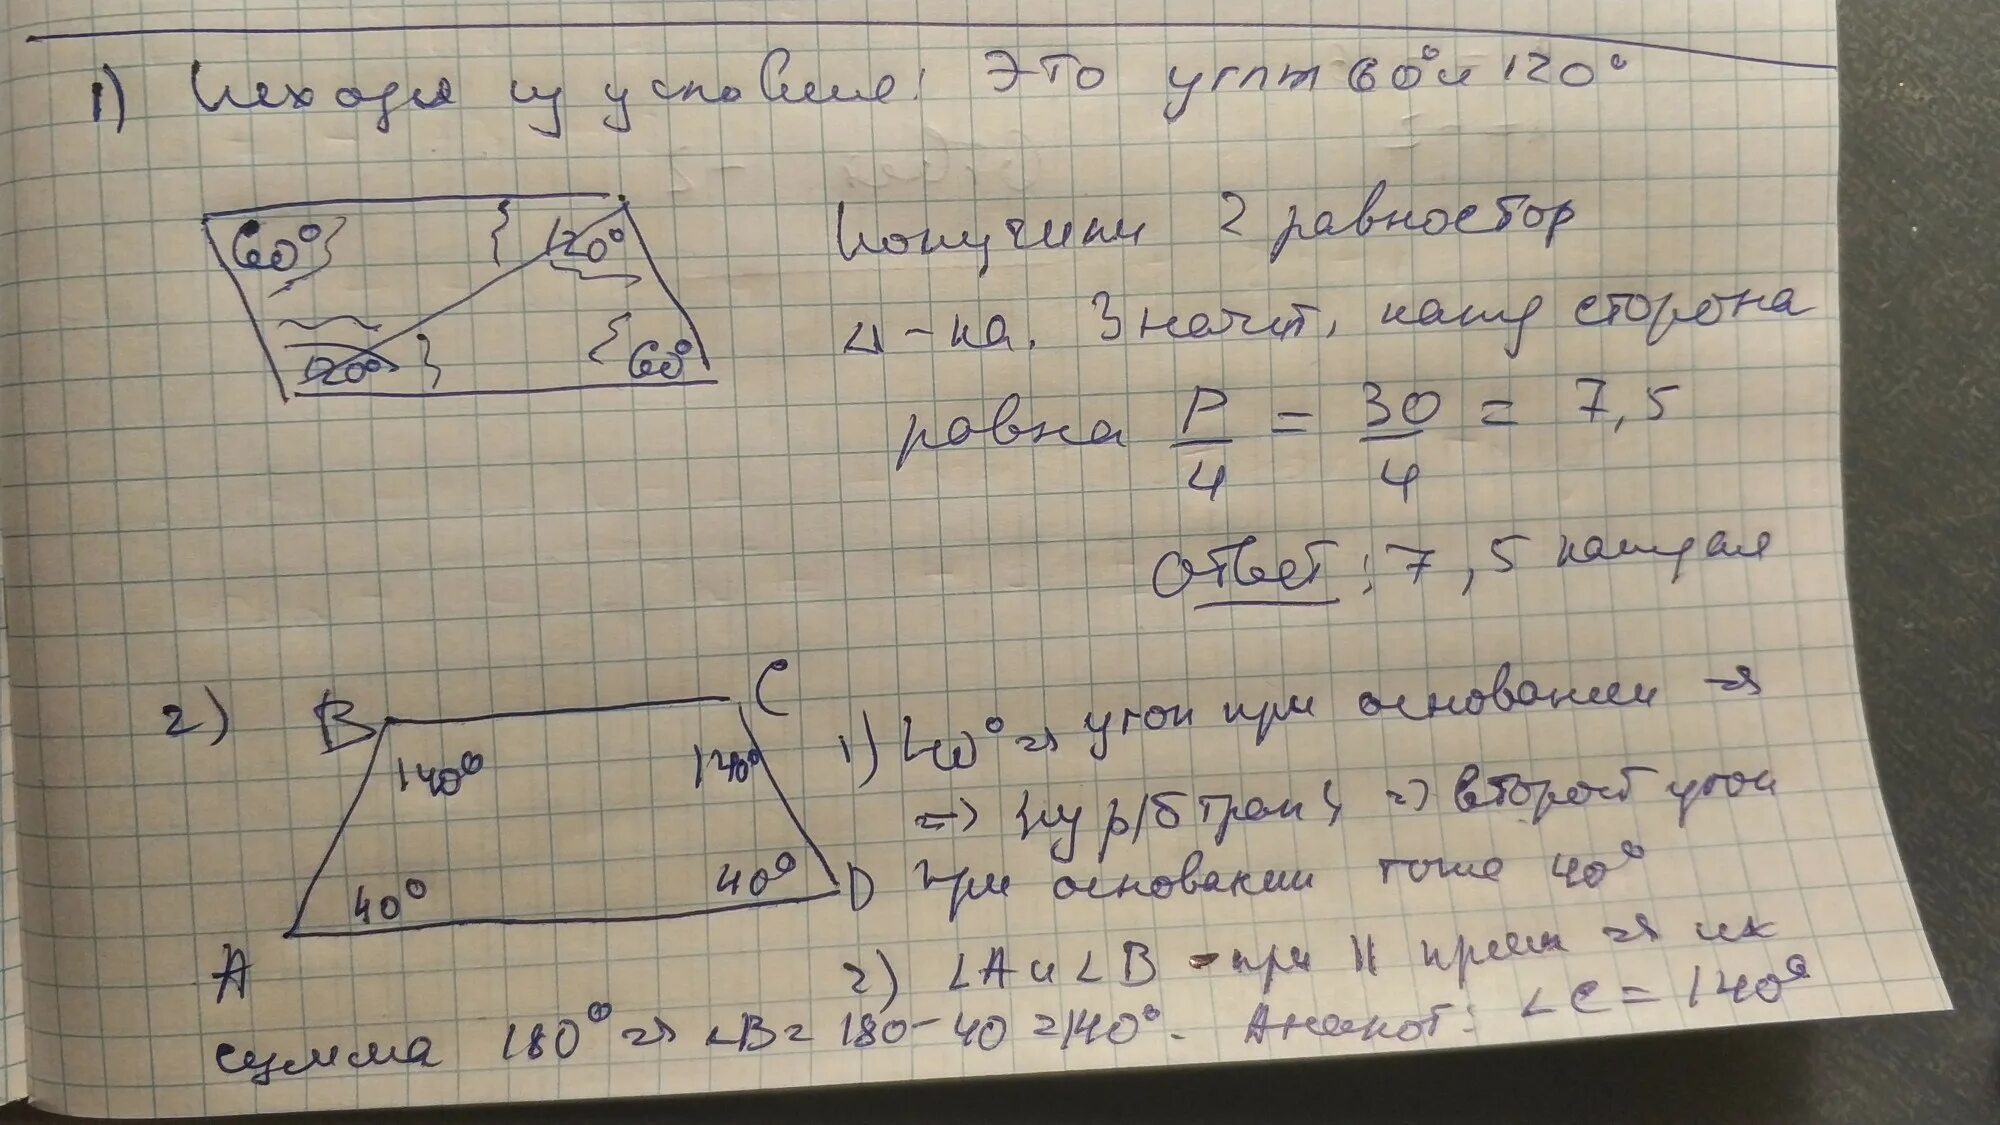 1) Исходя из условия: Это углы 60° и 120°
60° 120°
120° 60°
Получили 2 равностор
Δ-ка. Значит, кажд сторона
равна P/4 = 30/4 = 7,5
Ответ: 7,5 каждая
2) B C
140° 140°
40° 40°
A D
1) ∠40° => угол при основании =>
=> из р/б трап, => второй угол
при основании тоже 40°
2) ∠A и ∠B - при || прям => их
сумма 180° => ∠B = 180-40=140°. Аналог: ∠C = 140°